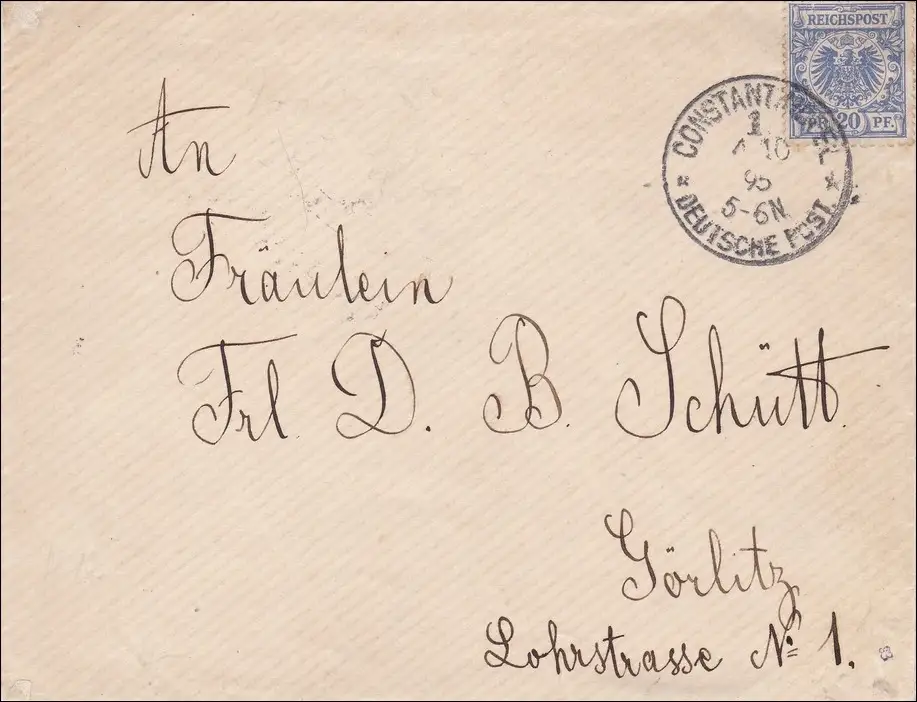 REICHSPOST
PF. 20 PF.
CONSTANTINOPEL
1
4 10
95
5-6N.
* DEUTSCHE POST. *
An
Fräulein
Frl. D. B. Schütt.
Görlitz
Lohrstrasse No 1.